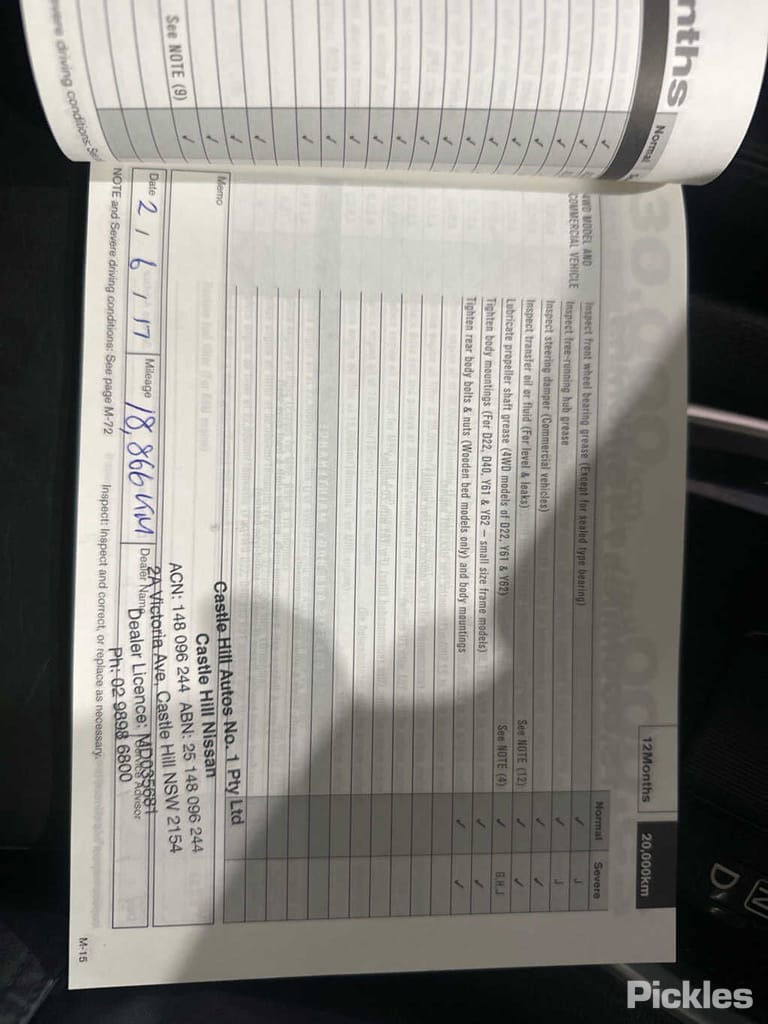 nths
Normal
See NOTE (9)
12Months
20,000km
Normal
Severe
4WD MODEL AND
COMMERCIAL VEHICLE
Inspect front wheel bearing grease (Except for sealed type bearing) ✓ J
Inspect free-running hub grease ✓ J
Inspect steering damper (Commercial vehicles) ✓ ✓
Inspect transfer oil or fluid (For level & leaks) See NOTE (12) ✓ ✓
Lubricate propeller shaft grease (4WD models of D22, Y61 & Y62) See NOTE (4) ✓ G.H.J
Tighten body mountings (For D22, D40, Y61 & Y62 – small size frame models) ✓ ✓
Tighten rear body bolts & nuts (Wooden bed models only) and body mountings ✓ ✓
Memo
Castle Hill Autos No. 1 Pty Ltd
Castle Hill Nissan
ACN: 148 096 244 ABN: 25 148 096 244
2A Victoria Ave, Castle Hill NSW 2154
Dealer Licence: MD035681
Ph: 02 9898 6800
Date 2 / 6 / 17 Mileage 18,866 KM Dealer Name
Service Advisor
NOTE and Severe driving conditions: See page M-72
Inspect: Inspect and correct, or replace as necessary.
M-15
N
D
Pickles